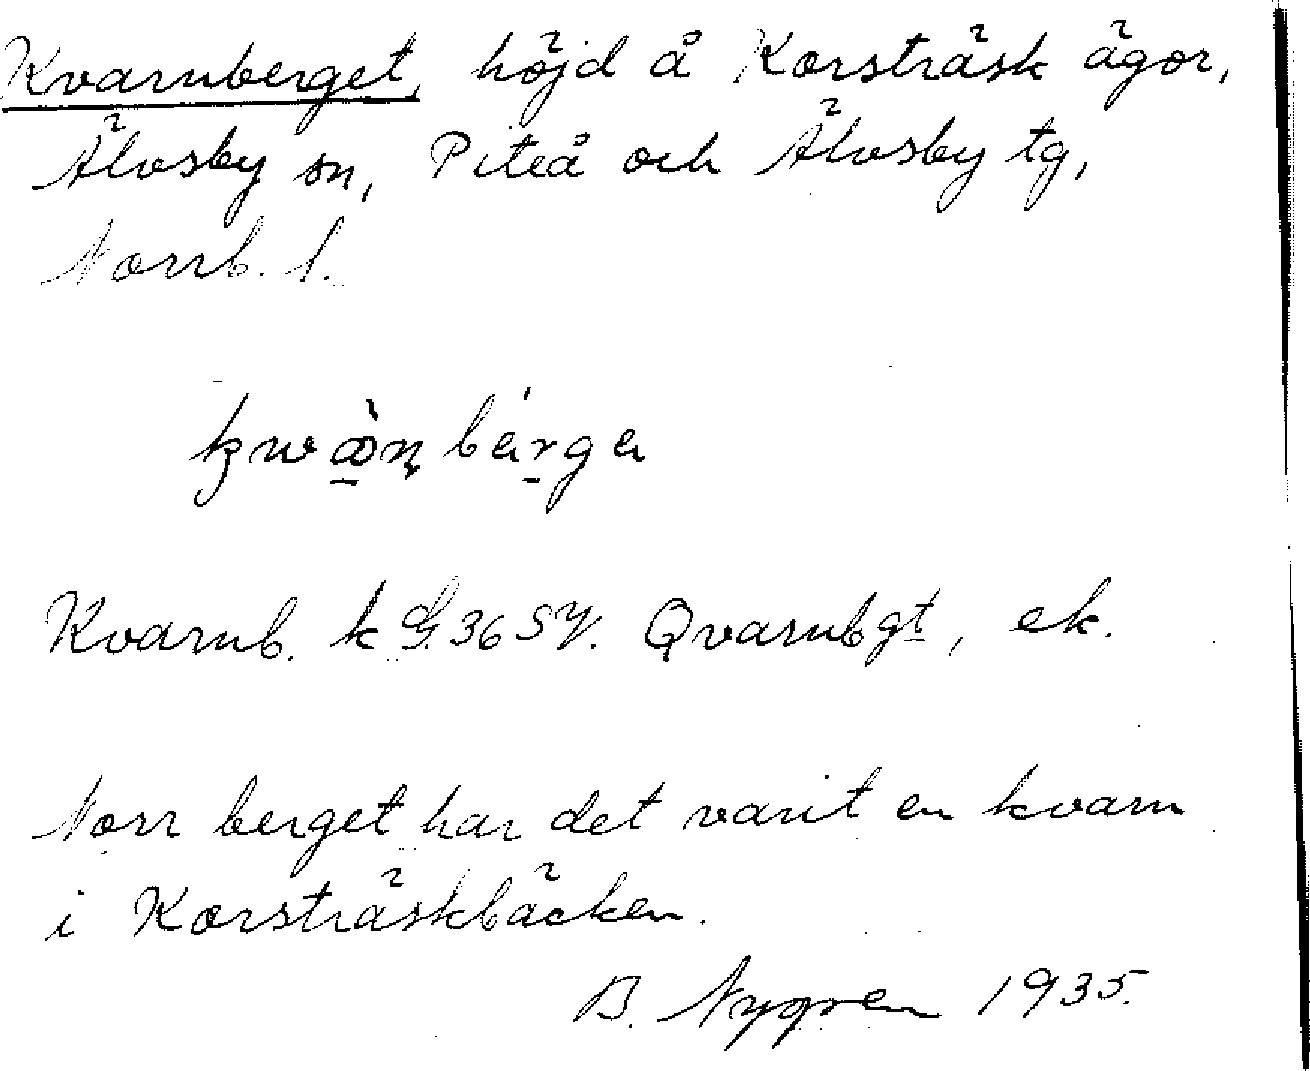 Kvarnberget, höjd å Korsträsk ägor,
Älvsby sn, Piteå och Älvsby tg,
Norrb. l.
Kvarnb. k G. 36 SY. Qvarnbgt, ek.
Norr berget har det varit en kvarn
i Korsträskbäcken.
B. Nygren 1935.